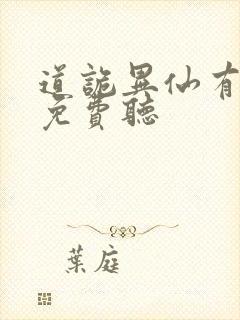 道詭異仙有
免費聽
葉庭